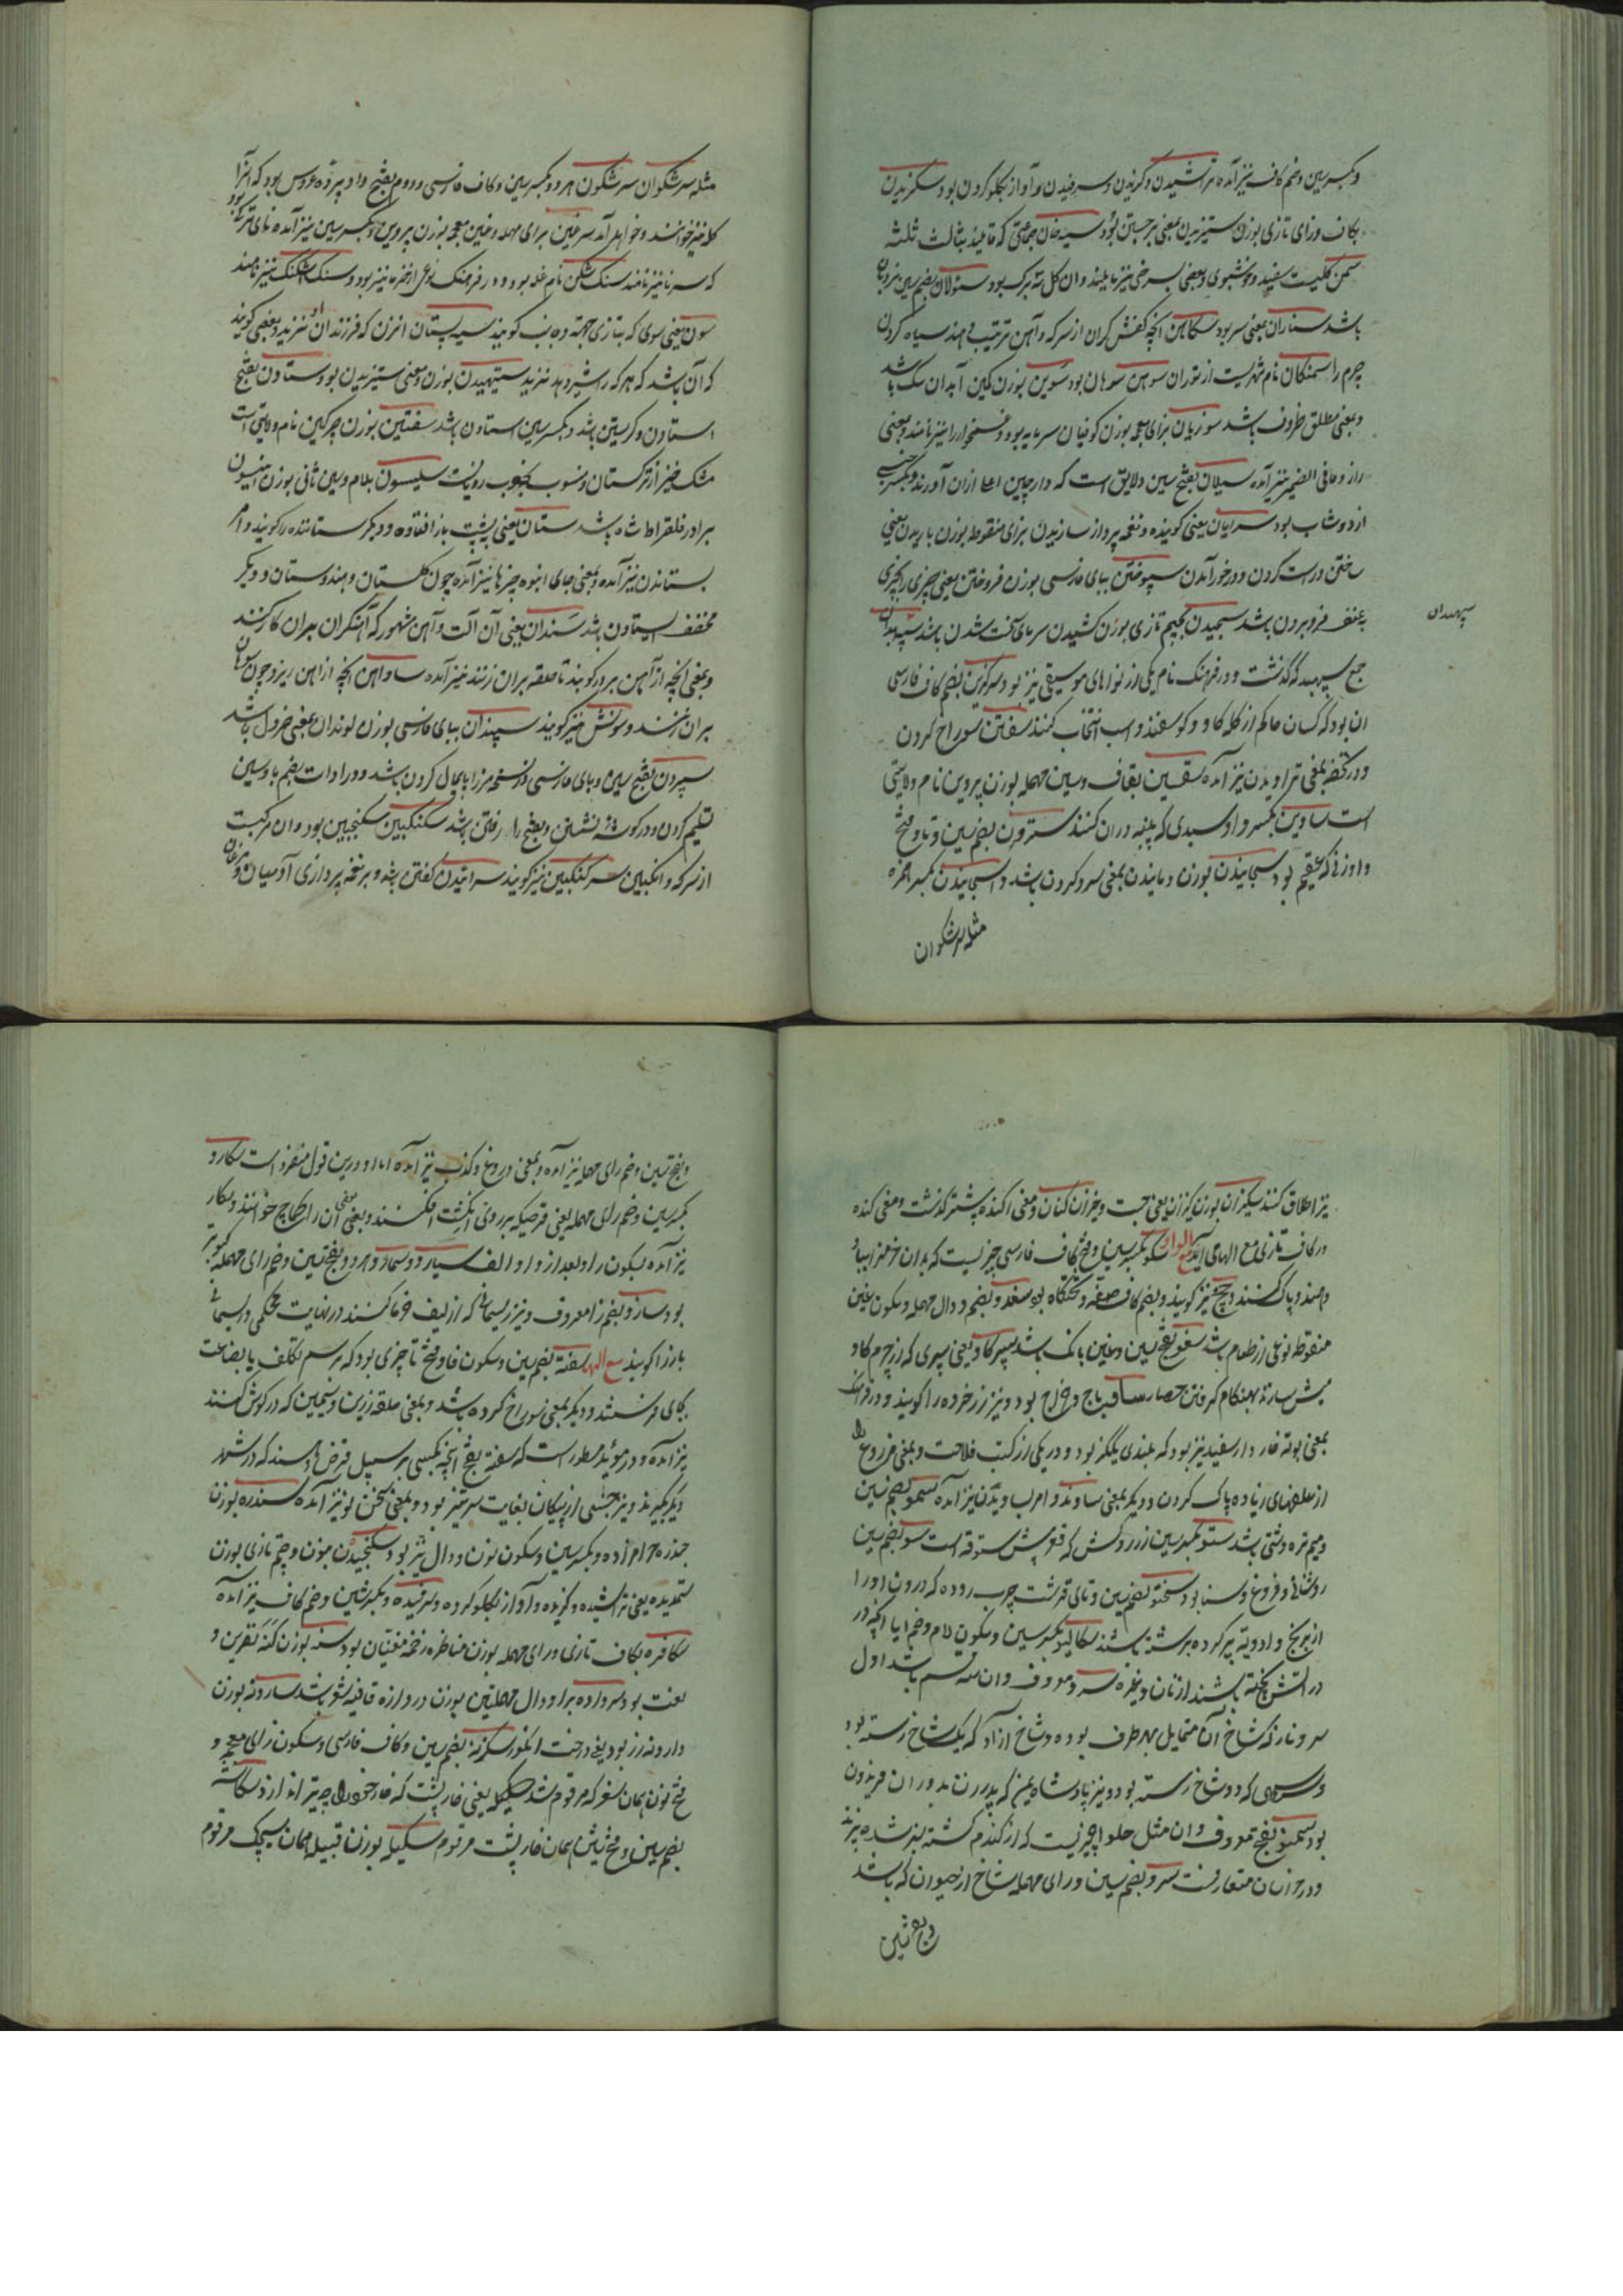 و بکسر سین و ضم کاف نیز آمده تراشیدن و گزیدن و سرفیدن و آواز بگلو کردن بود سکزیدن
بکاف و زای تازی بوزن ستیزیدن بمعنی برجستن بود سیه خان جماعتی که قایند بثالث ثلثه
سمن گلیست سفید و خوشبوی و بعضی بسرخی نیز مایلند و ان کل شه برک بود ستولان بضم سین نردبان
باشد ستاران بمعنی سر بود سکاهن انچه کفش کران از سرکه و آهن ترتیب دهند سیاه کردن
چرم را سمنکان نام شهریست از توران سوهن سوهان بود سوین بوزن کمین آبدان سک باشد
و بمعنی مطلق ظروف باشد سوزیان بزای معجمه بوزن کوفیان سرمایه بود و غمخوار را نیز نامند و بمعنی
راز و مافی الضمیر نیز آمده سیلان بفتح سین ولایتی است که دارچین اعلا ازان آورند و بکسر
از دوشاب بود سرایان یعنی کوینده و نغمه پرداز سازیدن بزای منقوط بوزن باریدن یعنی
ساختن و درست کردن و در خور آمدن سپوختن ببای فارسی بوزن فروختن یعنی چیزی را بچیزی
به عنف فرو بردن باشد سجیدن بجیم تازی بوزن کشیدن سرمای سخت شدن باشد سپهبدان
سپهبدان
جمع سپهبد که گذشت و در فرهنک نام یکی از نواهای موسیقی نیز بود سرکزین بضم کاف فارسی
ان بود که کسان حاکم از کله کاو و کوسفند و اسب انتخاب کنند سفتن سوراخ کردن
و در تحفه بمعنی تراویدن نیز آمده سقسین بقاف و سین مهمله بوزن پروین نام ولایتی
است ساوین بکسر واو سبدی که پنبه دران کنند سترون بضم سین و تا و فتح
واو زنی که عقیم بود سجانیدن بوزن دمانیدن بمعنی سرد کردن باشد و اسجانیدن بکسر همزه
مثله سرشکوان
مثله سرشکوان سرشکون هر دو بکسر سین و کاف فارسی و دوم بفتح واو پرده عروس بود که آنرا
کله نیز خوانند و خواهد آمد سرغین برای مهمله و غین معجمه بوزن پروین و بکسر سین نیز آمده نای ترکی بود
که سرنا نیز نامند سنک شکن نام غله بود و در فرهنک نوعی از خرما نیز بود و سنک اشکنک نیز نامند
سون یعنی سوی که بتازی جهة و جانب کویند سیه پستان انزن که فرزند ان او نزید و بعضی کویند
که آن باشد که هر که را شیر دهد نزید ستیهیدن بوزن و معنی ستیزیدن بود ستاون بفتح
استاون و کرستین باشد و بکسر سین استاون باشد سفتین بوزن چرکین نام ولایتی است
مشک خیز از ترکستان و منسوب بخوب رویانست سلیسون بلام و سین ثانی بوزن
برادر فلقراط شاه باشد ستان یعنی به پشت باز افتاده و دیکر ستاننده را کویند و امر
بستاندن نیز آمده و بمعنی جای انبوه چیزها نیز آمده چون کلستان و هندوستان و دیکر
مخفف استاون باشد سندان یعنی آن آلت و آهن مشهور که آهنکران بران کار کنند
و بمعنی انچه از آهن بر در کوبند تا حلقه بران زنند نیز آمده ساواهن انچه از اهن ریزد چون سوهان
بران زنند و سونش نیز کویند سپندان ببای فارسی بوزن لوندان بمعنی خردل باشد
سپردن بفتح سین و بای فارسی در نسخه میرزا پایمال کردن باشد و در ادات بضم با و سین
تسلیم کردن و در کوشه نشستن و بفتح را رفتن باشد سکنکبین سکنجبین بود و ان مرکبست
از سرکه و انکبین سرکنکبین نیز کویند سراییدن کفتن باشد و بر نغمه پردازی آدمیان و مرغان
نیز اطلاق کنند سیکیزان بوزن یعنی جست و خیز زن کنان و معنی اکنده پیشتر گذشت
در کاف تازی مع الهامی آید مع الواو سکو بکسر سین و فتح کاف فارسی چیزیست که بدان خرمن بباد
دهند و پاک کنند و چچ نیز کویند و بضم کاف صفه و تختگاه بود سغدو بضم و دال مهمله و سکون غین
منقوطه نوعی از طعام باشد سغو بفتح سین و غین بانک باشد سپرکاو یعنی سپری که از چرم کاو
میش سازند بهنکام کرفتن حصار ساو باج و خراج بود و نیز زر خرده را کویند و در فرهنک
بمعنی بوته خار دار سفید نیز بود که بلندی یکگز بود و در یکی از کتب فلاحت و بمعنی مزروع
از علفهای زیاده پاک کردن و دیکر بمعنی ساونده و امر بساویدن نیز آمده سمو بضم سین
و میم تره دشتی باشد ستو بکسر سین زر روکش که قوش ستوقه است سو بضم سین
روشنائی و فروغ و سنا بود سختو بضم سین و تای قرشت چرب روده که درون او را
از برنج و ادویه پر کرده برشته باشند سکالیو بکسر سین و سکون لام و ضم یا انچه در
در آتش پخته باشند از نان و غیره سرو معروف و ان سه قسم باشد اول
سرو ناز که شاخ آن متمایل بهر طرف بود دوم شاخ آزاد که یک شاخ رسته بود
که دو شاخ رسته بود و نیز پادشاه یمن که پدر زن پدران فریدون
بود سمنو بفتح معروف و ان مثل حلوا چیزیست که از کندم کشته سبز شده پزند
و در خراسان متعارفست سرو بضم سین و رای مهمله شاخ از حیوان که باشد
و بفتح سین
و بفتح سین و ضم رای مهمله نیز آمده و بمعنی دروغ و کذب نیز آمده اما او درین قول منفرد است سکارو
بکسر سین و ضم رای مهمله یعنی قرصیکه بر روی انکشت افکنند و بعضی ان را کماج خوانند و سکار
نیز آمده بسکون را و بعد ازو او الف سیارو و سمارو هر دو بفتح سین و ضم رای مهمله کبوتر
بود سازو بضم زا معروف و نیز ریسمانی که از لیف خرما کنند در نهایت محکمی و
بارزا کویند مع الها سفته بضم سین و سکون فا و فتح تا چیزی بود که برسم تکلف یا بضاعت
بجای فرستند و دیکر بمعنی سوراخ کرده باشد و بمعنی حلقه زرین و سیمین که در کوش کنند
نیز آمده و در مؤید مسطور است که سفته بفتح انچه بکسی بر سبیل قرض دهند که در شهر
دیکر بکیرند و نیز جنسی از پیکان بغایت سرتیز بود و بمعنی سخن نو نیز آمده سندره بوزن
جندره حرامزاده و بکسر سین و سکون نون و دال نیز بود سکنجیده بنون و جیم تازی بوزن
یعنی تراشیده و کزیده و آواز بگلو کرده و سرفیده و بکسر سین و ضم کاف نیز آمده
سکافره بکاف تازی و رای مهمله بوزن مناظره زخمه مغنیان بود سنه بوزن کنه نفرین و
لعنت بود سرواده برا و دال مهملتین بوزن دروازه قافیه شعر باشد سارونه بوزن
وارونه رز بود یعنی درخت انکور سکرنه بضم سین و کاف فارسی و سکون زای معجمه و
فتح نون همان سغر که مرقوم شد یعنی خارپشت که خار خود را چو تیر اندازد سکاشه
بضم سین و فتح شین همان خارپشت مرقوم سکیله بوزن قبیله همان سیچک مرقوم